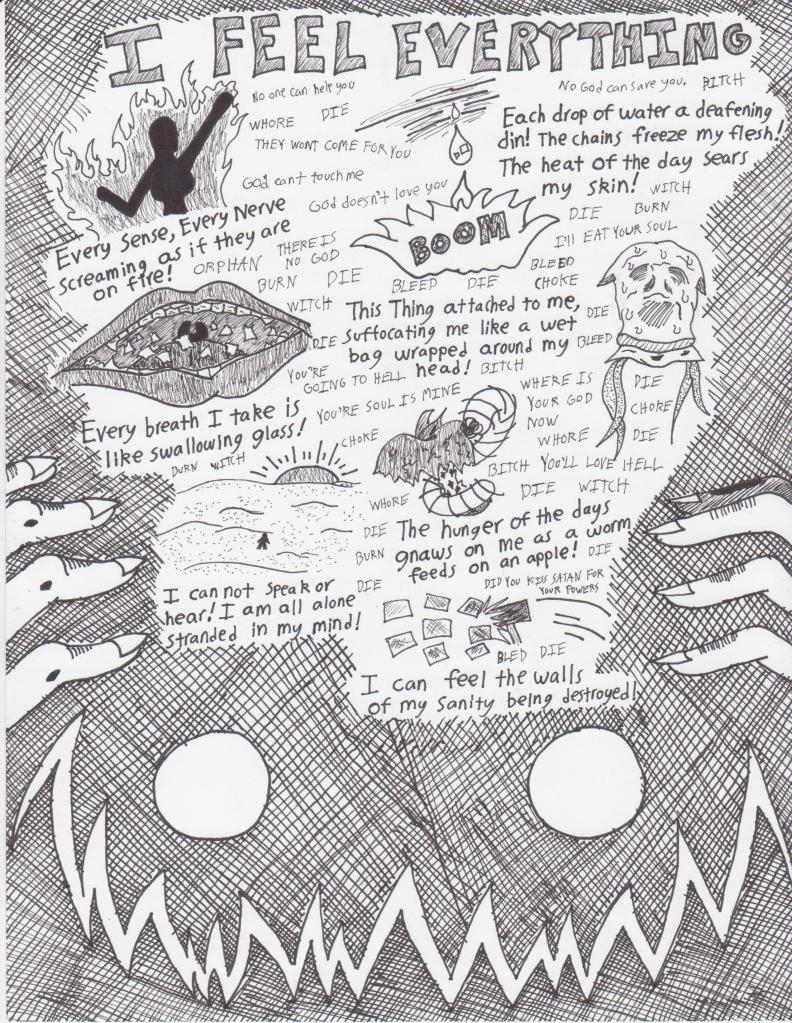 I FEEL EVERYTHING
No one can help you
WHORE DIE
THEY WONT COME FOR YOU
GOD cant touch me
GOD doesn't love you
No God can save you. BITCH
Each drop of water a deafening
din! The chains freeze my flesh!
The heat of the day sears
my skin!
WITCH
DIE BURN
I'll EAT YOUR SOUL
BOOM
Every Sense, Every Nerve
screaming as if they are
on fire!
ORPHAN
THERE IS
NO GOD
BURN DIE
BLEED DIE
BLEED
CHOKE
WITCH
DIE
This Thing attached to me,
suffocating me like a wet
bag wrapped around my
head!
DIE
BLEED
BITCH
YOU'RE
GOING TO HELL
YOU'RE SOUL IS MINE
WHERE IS
YOUR GOD
NOW
WHORE
DIE
CHOKE
DIE
Every breath I take is
like swallowing glass!
BURN WITCH
CHOKE
BITCH YOU'LL LOVE HELL
WHORE
DIE WITCH
DIE
BURN
DIE
The hunger of the days
gnaws on me as a worm
feeds on an apple!
DIE
DID YOU KISS SATAN FOR
YOUR POWERS
I can not speak or
hear! I am all alone
stranded in my mind!
BLED DIE
I can feel the walls
of my sanity being destroyed!